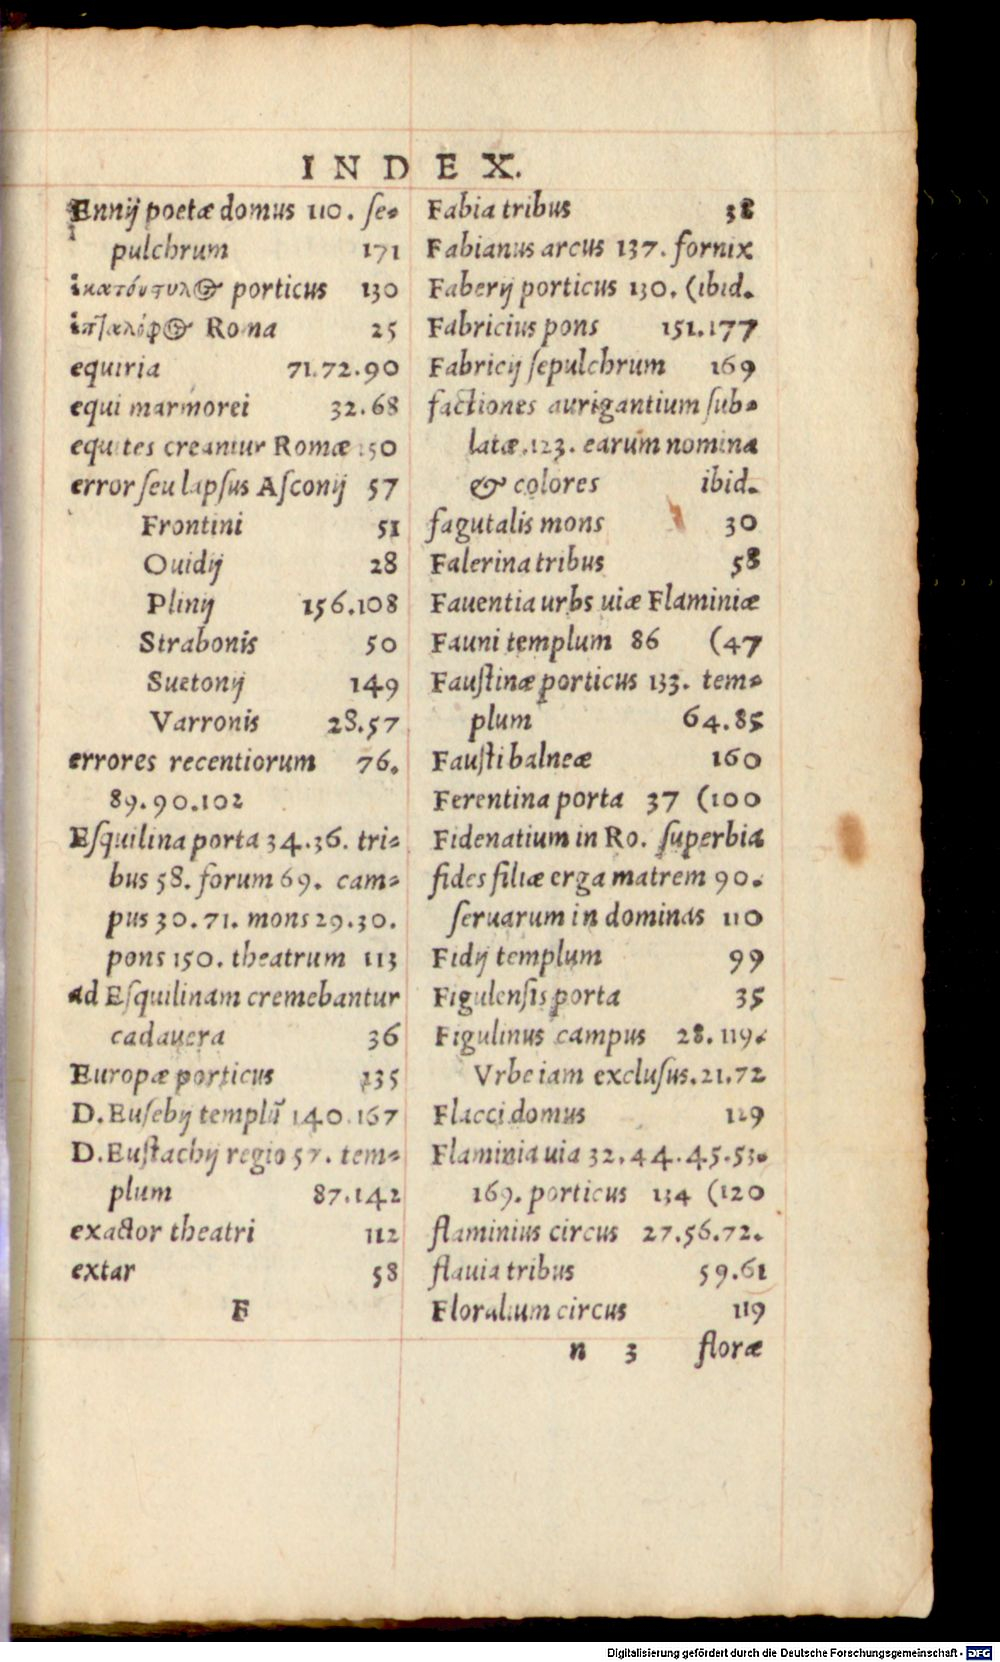 INDEX.
Ennij poetæ domus 110. ſe-
pulchrum 171
ἑκατόστυλος porticus 130
ἑπτάλοφος Roma 25
equiria 71.72.90
equi marmorei 32.68
equites creantur Romæ 150
error ſeu lapſus Aſconij 57
Frontini 51
Ouidij 28
Plinij 156.108
Strabonis 50
Suetonij 149
Varronis 28.57
errores recentiorum 76.
89.90.102
Eſquilina porta 34.36. tri-
bus 58. forum 69. cam-
pus 30.71. mons 29.30.
pons 150. theatrum 113
ad Eſquilinam cremebantur
cadauera 36
Europæ porticus 135
D. Euſebij templũ 140.167
D. Euſtachij regio 57. tem-
plum 87.142
exactor theatri 112
extar 58
F
Fabia tribus 38
Fabianus arcus 137. fornix
Faberij porticus 130. (ibid.
Fabricius pons 151.177
Fabricij ſepulchrum 169
factiones aurigantium ſub-
latæ.123. earum nomina
& colores ibid.
fagutalis mons 30
Falerina tribus 58
Fauentia urbs uiæ Flaminiæ
Fauni templum 86 (47
Fauſtinæ porticus 133. tem-
plum 64.85
Fauſti balneæ 160
Ferentina porta 37 (100
Fidenatium in Ro. ſuperbia
fides filiæ erga matrem 90.
ſeruarum in dominas 110
Fidij templum 99
Figulenſis porta 35
Figulinus campus 28.119.
Vrbe iam excluſus.21.72
Flacci domus 129
Flaminia uia 32.44.45.53.
169. porticus 134 (120
flaminius circus 27.56.72.
flauia tribus 59.61
Floralium circus 119
n 3 floræ
Digitalisierung gefördert durch die Deutsche Forschungsgemeinschaft - DFG